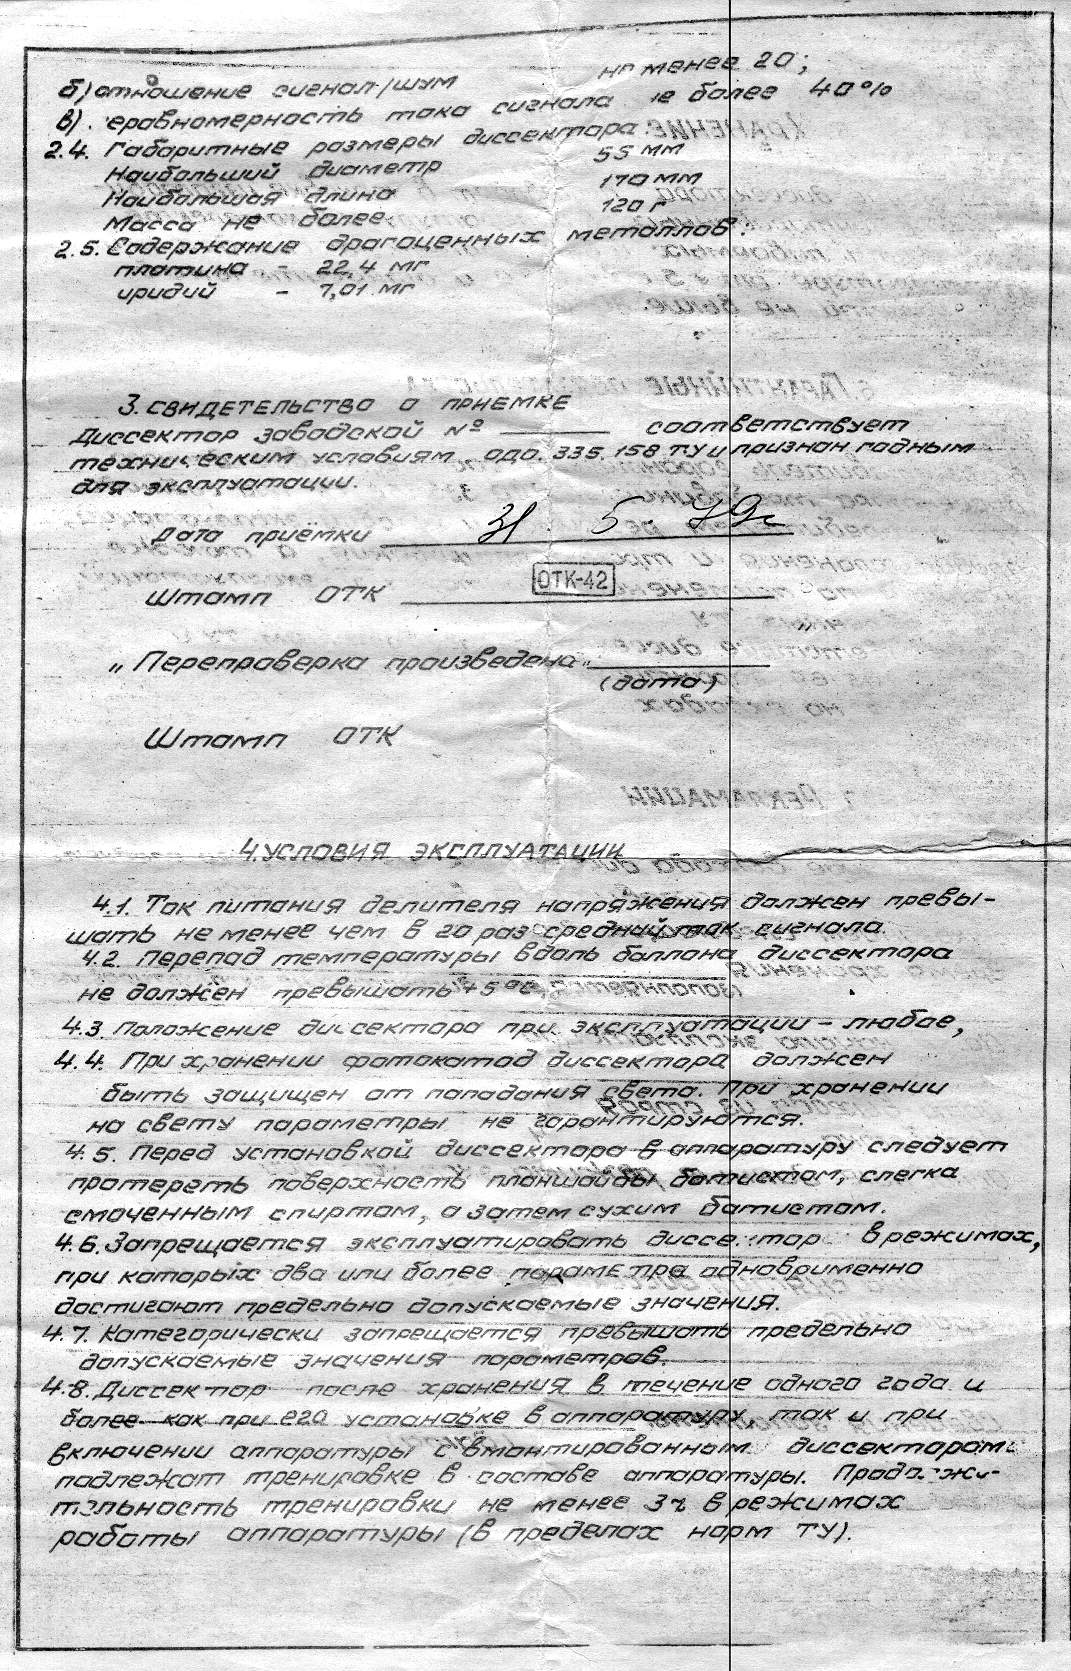 б) отношение сигнал/шум не менее 20;
в). еравномерность тока сигнала не более 40%
2.4. Габаритные размеры диссектора:
Наибольший диаметр 55 мм
Наибольшая длина 170 мм
Масса не более 120 г
2.5. Содержание драгоценных металлов:
платина - 22,4 мг
иридий - 7,01 мг
3. СВИДЕТЕЛЬСТВО О ПРИЕМКЕ
Диссектор заводской № соответствует
техническим условиям одо. 335. 158 ТУ и признан годным
для эксплуатации.
Дата приёмки 31 5 79г
Штамп ОТК ОТК-42
„Перепроверка произведена"
(дата)
Штамп ОТК
4. УСЛОВИЯ ЭКСПЛУАТАЦИИ
4.1. Ток питания делителя напряжения должен превы-
шать не менее чем в 20 раз средний ток сигнала.
4.2. Перепад температуры вдоль баллона диссектора
не должен превышать +5°С.
4.3. Положение диссектора при эксплуатации - любое,
4.4. При хранении фотокатод диссектора должен
быть защищен от попадания света. При хранении
на свету параметры не гарантируются.
4.5. Перед установкой диссектора в аппаратуру следует
протереть поверхность планшайбы батистом, слегка
смоченным спиртом, а затем сухим батистом.
4.6. Запрещается эксплуатировать диссектор в режимах,
при которых два или более параметра одновременно
достигают предельно допускаемые значения.
4.7. Категорически запрещается превышать предельно
допускаемые значения параметров.
4.8. Диссектор после хранения в течение одного года и
более как при его установке в аппаратуру, так и при
включении аппаратуры с вмонтированным диссектором
подлежат тренировке в составе аппаратуры. Продолжи-
тельность тренировки не менее 3ч в режимах
работы аппаратуры (в пределах норм ТУ).